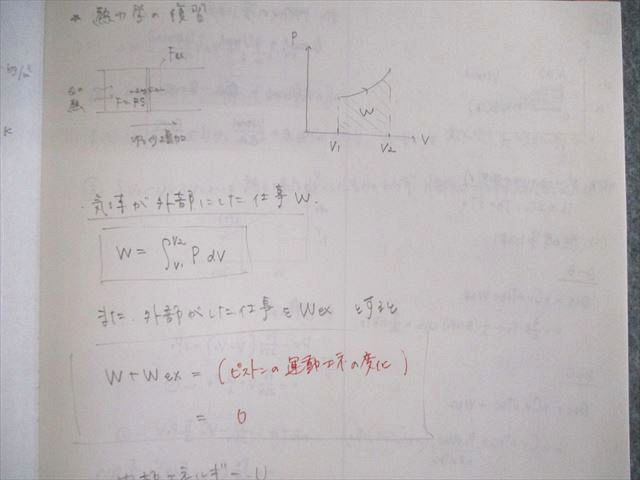 * 熱力学の復習
Fex
F=PS
P
W
V1
V2
V
・気体が外部にした仕事W.
W = ∫V1V2 P dV
また、外部がした仕事をWex とすると
W + Wex = (ピストンの運動エネの変化)
= 0
内部エネルギー U